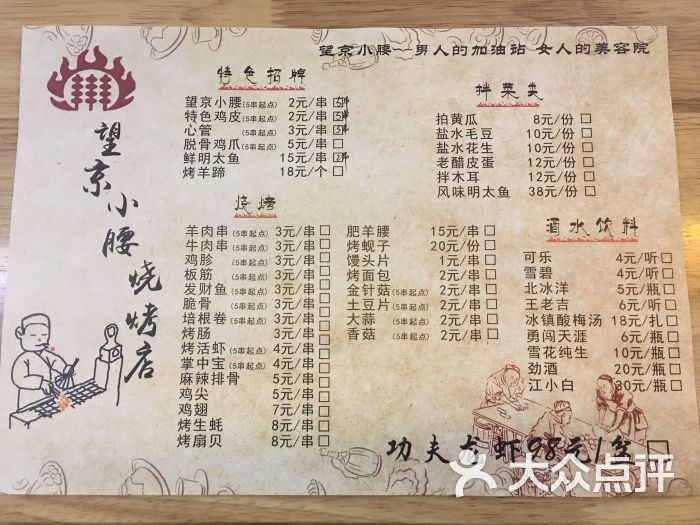 望京小腰--男人的加油站 女人的美容院
望京小腰烧烤店
特色招牌
望京小腰(5串起点) 2元/串
特色鸡皮(5串起点) 2元/串
心管(5串起点) 3元/串
脱骨鸡爪(5串起点) 5元/串
鲜明太鱼 15元/串
烤羊蹄 18元/个
烧烤
羊肉串(5串起点) 3元/串
牛肉串(5串起点) 3元/串
鸡胗(5串起点) 3元/串
板筋(5串起点) 3元/串
发财鱼(5串起点) 3元/串
脆骨(5串起点) 3元/串
培根卷(5串起点) 3元/串
烤肠 3元/串
烤活虾(5串起点) 4元/串
掌中宝(5串起点) 4元/串
麻辣排骨 5元/串
鸡尖 5元/串
鸡翅 7元/串
烤生蚝 8元/串
烤扇贝 8元/串
肥羊腰 15元/串
烤蚬子 20元/份
馒头片 1元/串
烤面包 2元/串
金针菇(5串起点) 2元/串
土豆片(5串起点) 2元/串
大蒜(5串起点) 2元/串
香菇(5串起点) 2元/串
拌菜类
拍黄瓜 8元/份
盐水毛豆 10元/份
盐水花生 10元/份
老醋皮蛋 12元/份
拌木耳 12元/份
风味明太鱼 38元/份
酒水饮料
可乐 4元/听
雪碧 4元/听
北冰洋 5元/瓶
王老吉 6元/听
冰镇酸梅汤 18元/扎
勇闯天涯 6元/瓶
雪花纯生 10元/瓶
劲酒 20元/瓶
江小白 30元/瓶
功夫龙虾98元/盆
大众点评